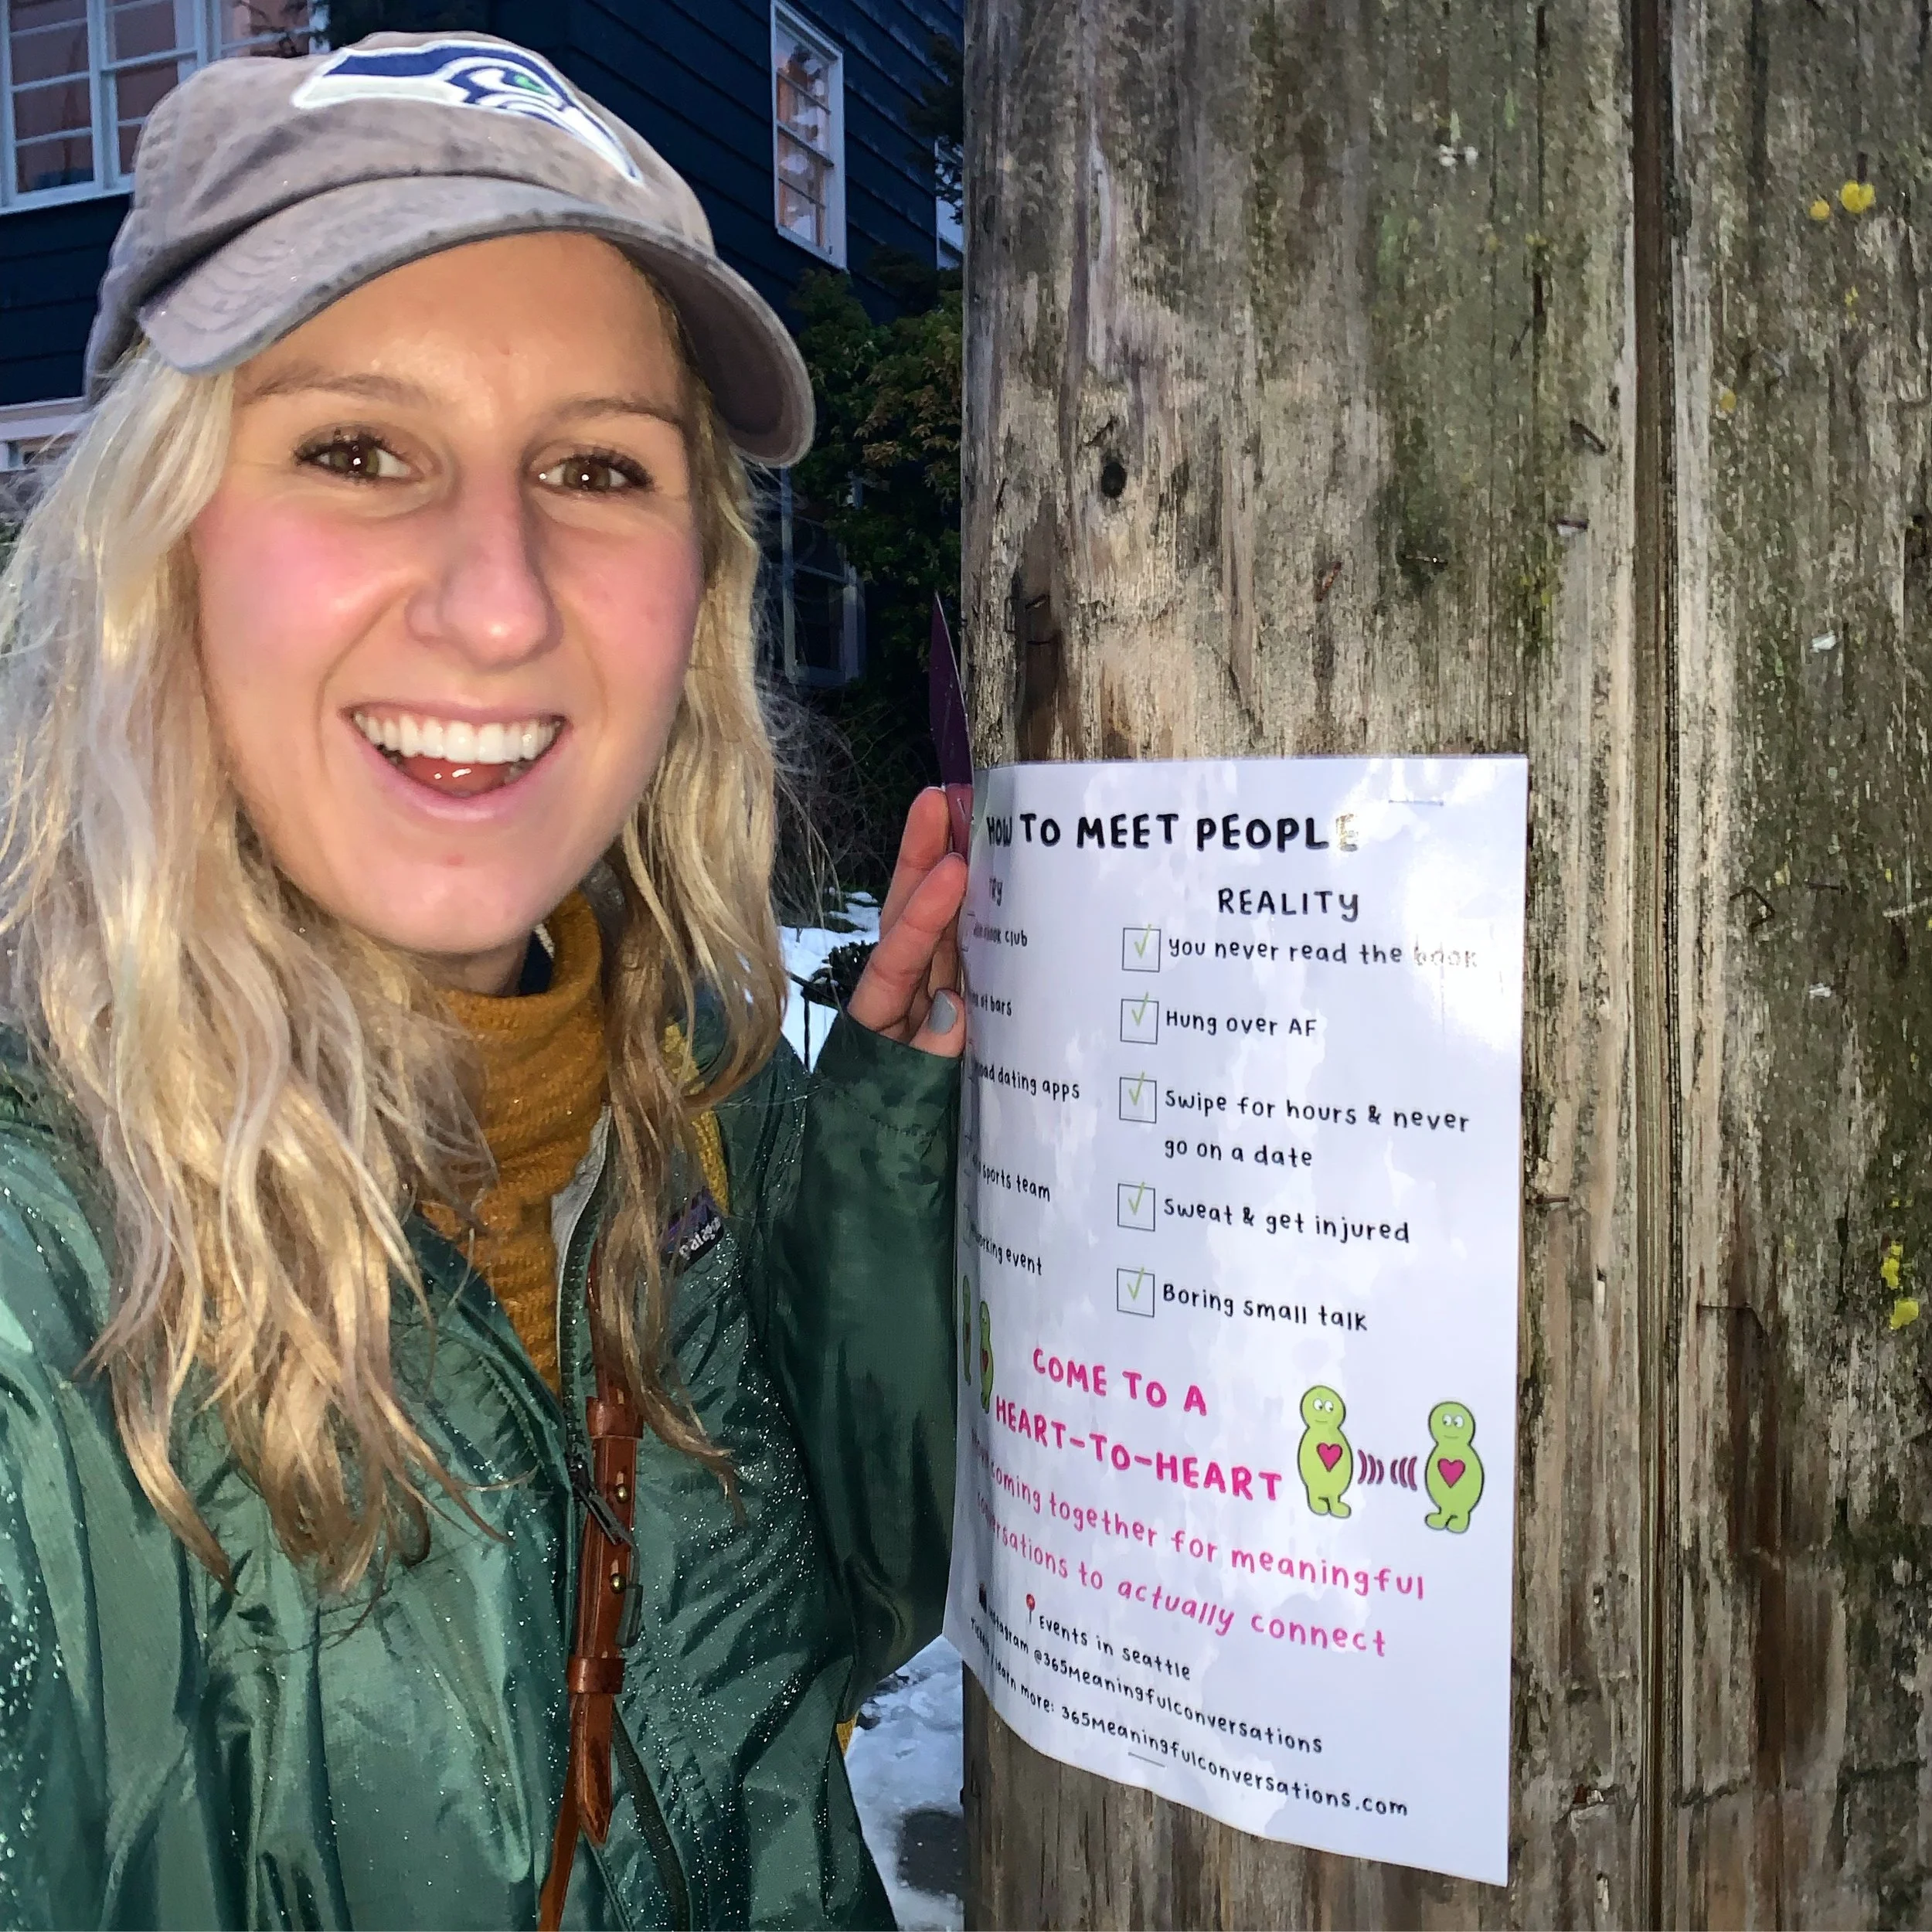 HOW TO MEET PEOPLE
REALITY
book club
you never read the book
of bars
Hung over AF
dating apps
Swipe for hours & never
go on a date
sports team
Sweat & get injured
event
Boring small talk
COME TO A
HEART-TO-HEART
coming together for meaningful
conversations to actually connect
Events in seattle
Instagram @365Meaningfulconversations
learn more: 365Meaningfulconversations.com